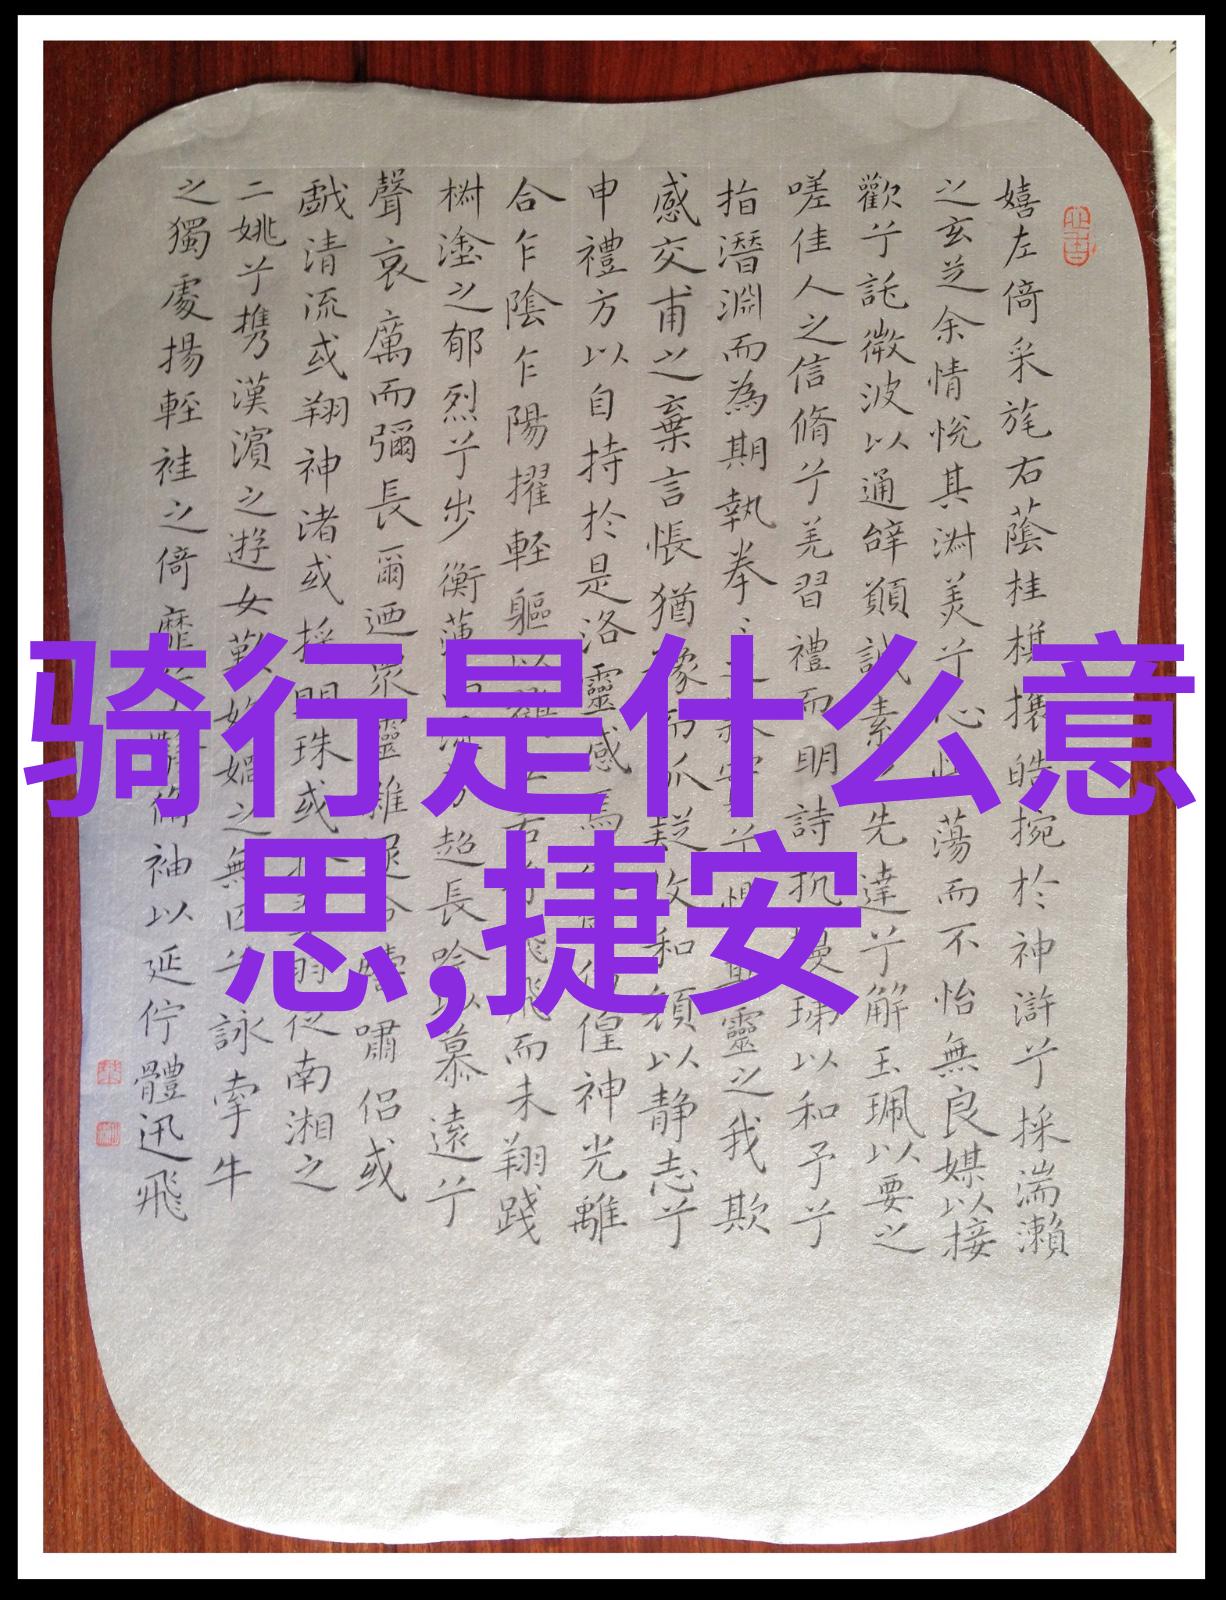 嬉左倚采旄右蔭桂旗攘皓捥於神滸兮採湍瀨
之玄芝余情悅其淑美兮心 蕩而不怡無良媒以接
歡兮託微波以通辝顚誠素 先達兮解玉珮以要之
嗟佳人之信脩兮羌習禮而明詩抗 以和予兮
指潛淵而為期執拳 靈之我欺
感交甫之棄言悵猶豫而狐疑收和顏以静志兮
申禮方以自持於是洛靈感焉 徨神光離
合乍陰乍陽擢輕軀以 飛而未翔踐
樹塗之郁烈兮步衡薄 超長吟以慕遠兮
聲哀厲而彌長爾迺眾靈雜 嘯侶或
戲清流或翔神渚或採明珠或 從南湘之
二姚兮攜漢濱之遊女歎 之無匹兮詠牽牛
之獨處揚輕袿之倚靡兮 脩袖以延佇體迅飛
骑行是什么意
思,捷安